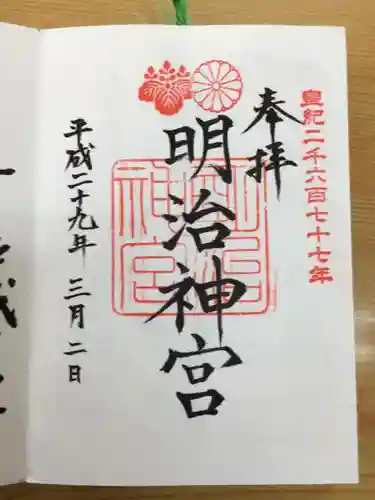 皇紀二千六百七十七年
奉拝
明治神宮
明治神宮
平成二十九年 三月二日